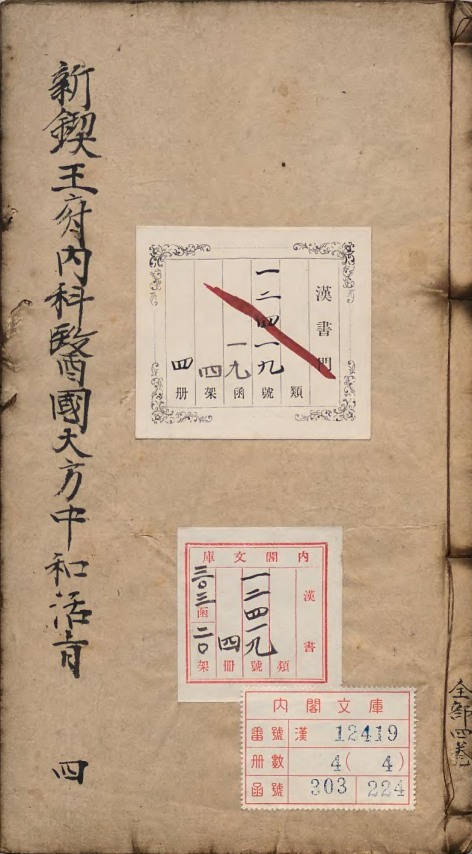 新鍥王府内科醫國大方中和活育
四
漢書門
類
一二四一九號
一九函
四架
四册
内閣文庫
漢書
類
一二四一九號
四冊
三〇三函
二〇架
内閣文庫
番號 漢 12419
册數 4( 4)
函號 303 224
全部四卷